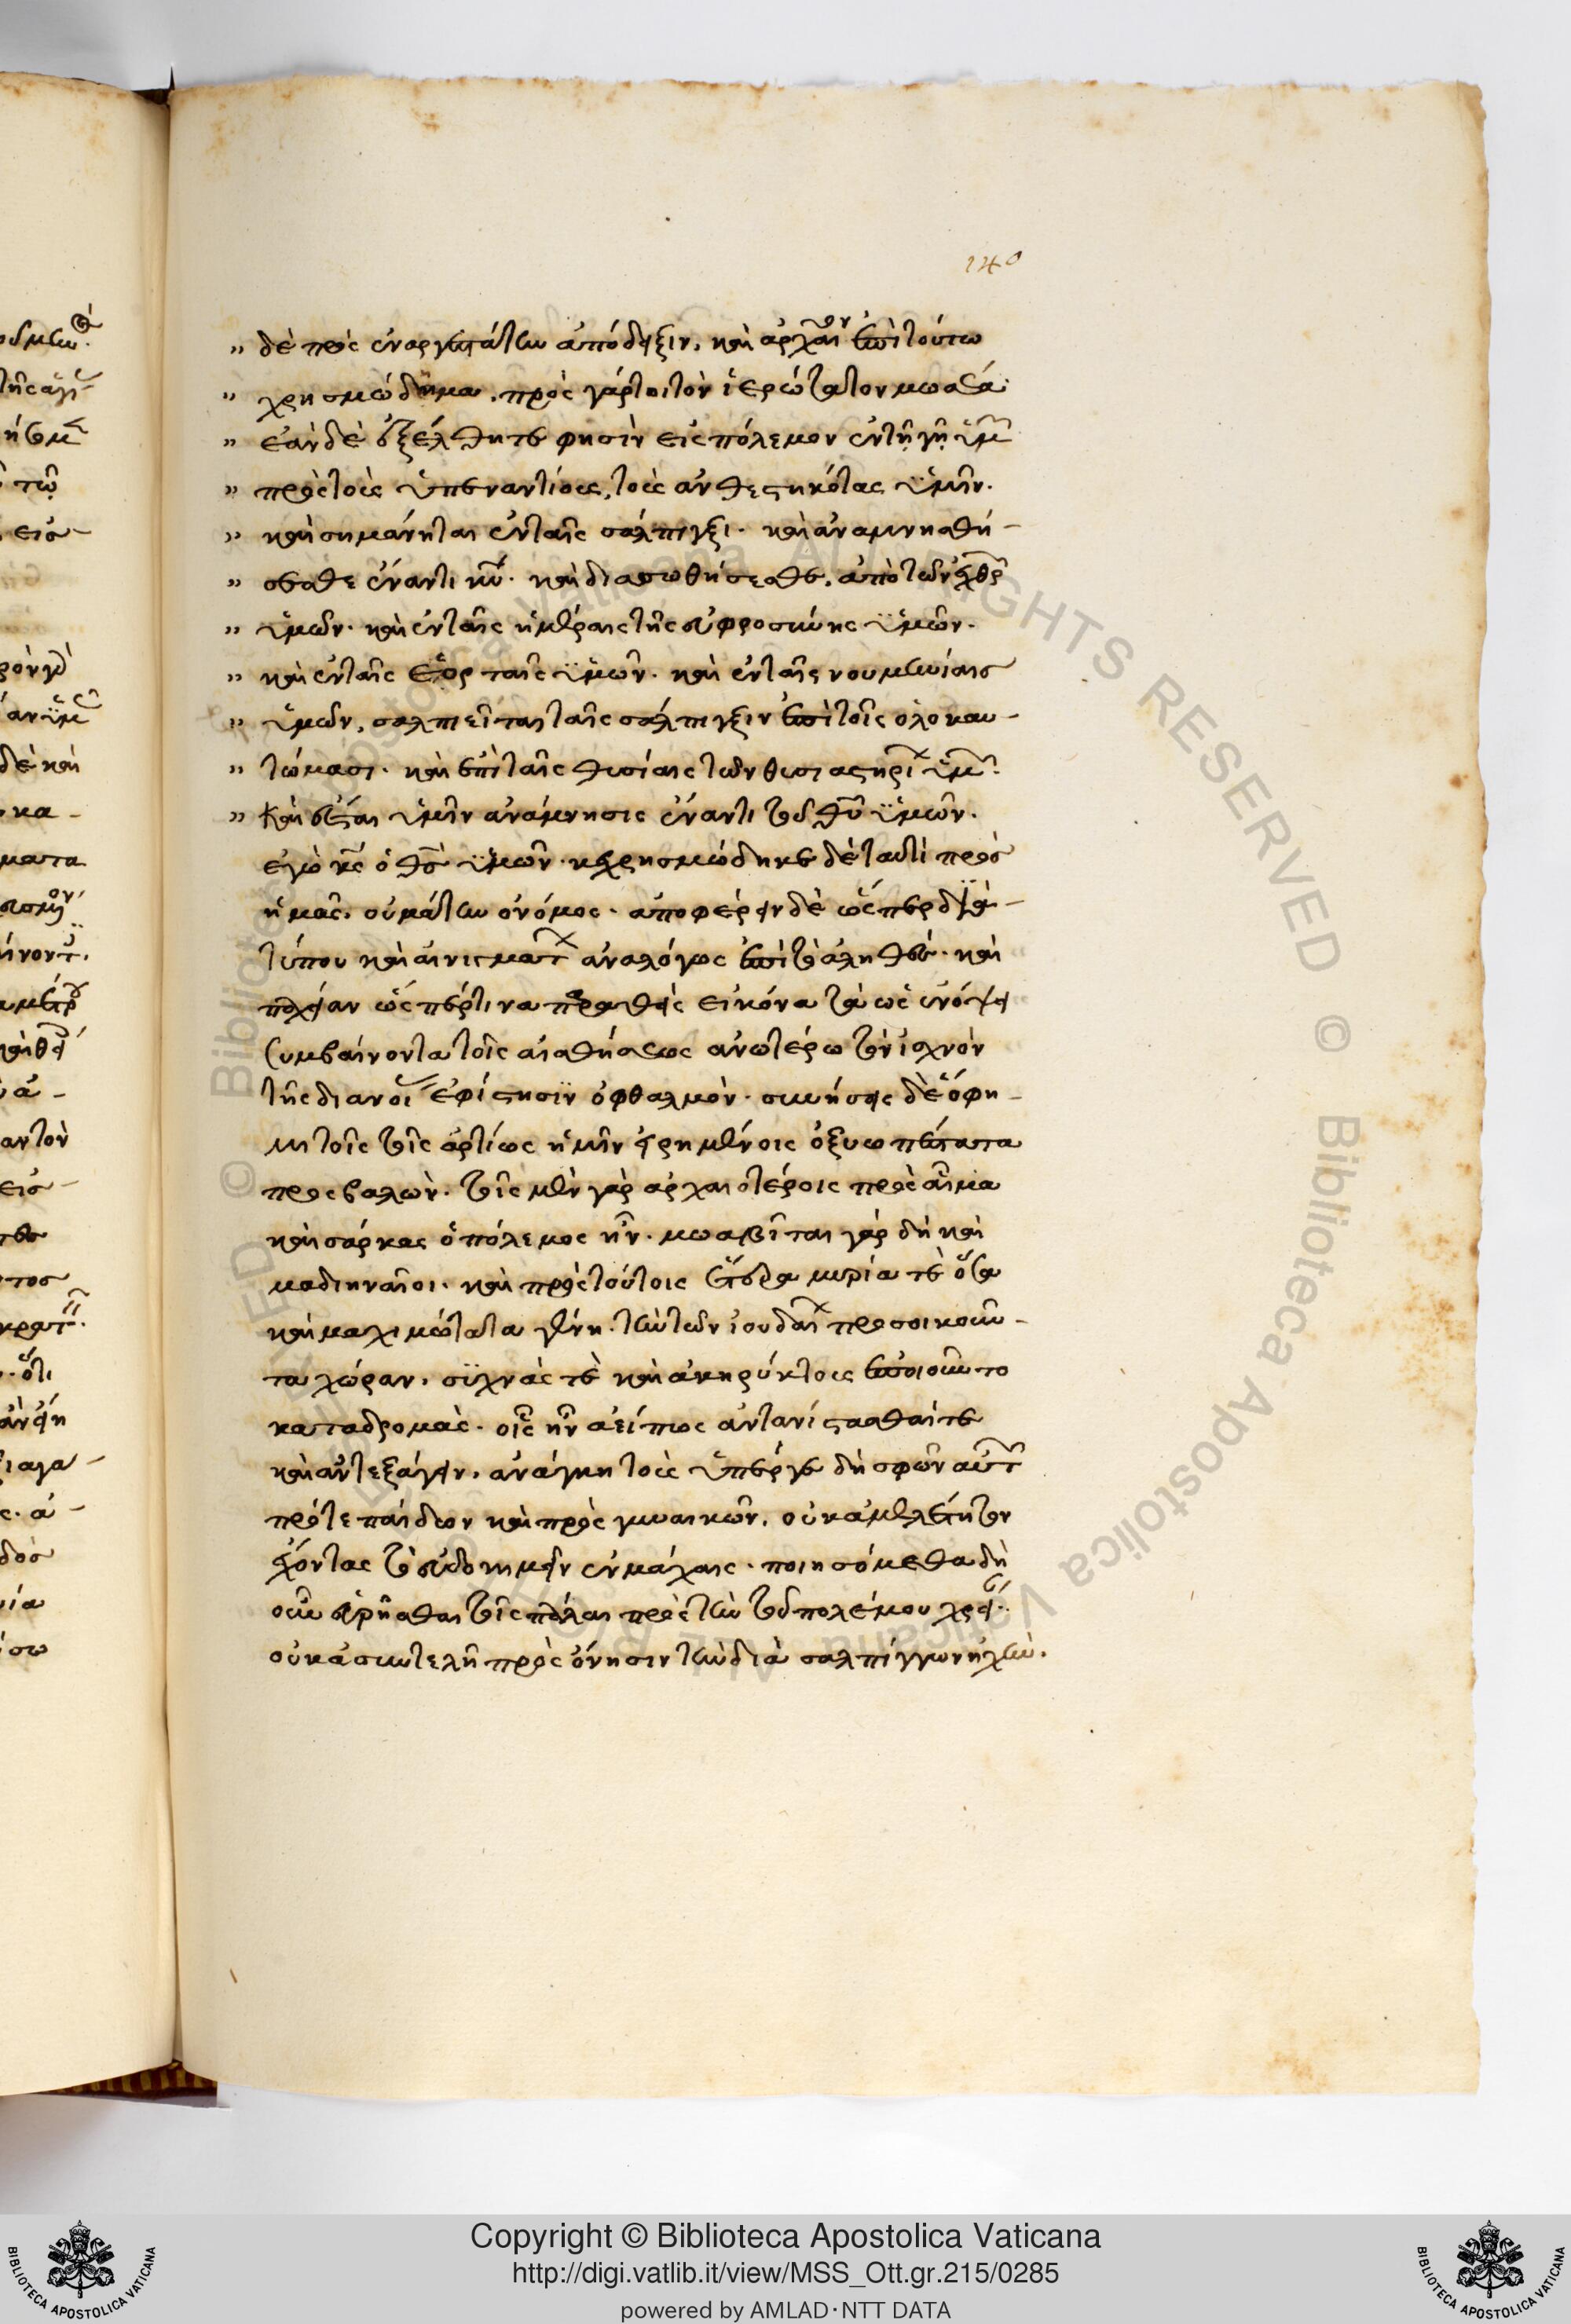 140
δὲ πρὸς ἐναργεστάτην ἀπόδειξιν, καὶ ἀρχαῖον ἐπὶ τούτω
χρησμώδημα. πρὸς γάρ τοι τὸν ἱερώτατον μωσέα·
ἐὰν δὲ ἐξέλθητε φησὶν εἰς πόλεμον ἐν τῆ γῆ ὑμ
πρὸς τοὺς ὑπεναντίους, τοὺς ἀνθεστηκότας ὑμῖν.
καὶ σημανεῖται ἐν ταῖς σάλπιγξι· καὶ ἀναμνησθή-
σεσθε ἔναντι κυ· καὶ διασωθήσεσθε, ἀπὸ τῶν ἐχθρ
ὑμῶν· καὶ ἐν ταῖς ἡμέραις τῆς εὐφροσύνης ὑμῶν.
καὶ ἐν ταῖς ἑορταῖς ὑμῶν· καὶ ἐν ταῖς νουμηνίαις
ὑμῶν, σαλπιεῖται ταῖς σάλπιγξιν ἐπὶ τοῖς ὁλοκαυ-
τώμασι· καὶ ἐπὶ ταῖς θυσίαις τῶν θυσιαστηρί ὑμ.
καὶ ἔσται ὑμῖν ἀνάμνησις ἔναντι τοῦ θυ ὑμῶν.
ἐγὼ κς ὁ θς ὑμῶν· κεχρησμώδηκε δὲ ταυτὶ πρὸς
ἡμᾶς, οὐ μάτην ὁ νόμος· ἀποφέρειν δὲ ὥσπερ διὰ
τύπου καὶ αἰνιγματ ἀναλόγως ἐπὶ τὸ ἀληθές· καὶ
παχεῖαν ὥσπερ τινα προθεὶς εἰκόνα τὰ ὡς ἐν ὄψει
συμβαίνοντα τοῖς αἰσθήσεως ἀνωτέρω τὸν ἰσχνὸν
τῆς διανοί ἐφίστησιν ὀφθαλμὸν· συνήσεις δὲ ὃ φη-
μι τοῖς τοῖς ἀρτίως ἡμῖν εἰρημένοις ὀξυωπέστατα
προσβαλὼν· τοῖς μὲν γὰρ ἀρχαιοτέροις πρὸς αἷμα
καὶ σάρκας ὁ πόλεμος ἦν· μωαβῖται γὰρ δὴ καὶ
μαδιηναῖοι· καὶ πρὸς τούτοις ἕτερα μυρία τὲ ὅσα
καὶ μαχιμώτατα γένη. τὴν τῶν ἰουδαί προσοικοῦν-
τα χώραν, συχνάς τὲ καὶ ἀκηρύκτους ἐποιοῦντο
καταδρομὰς· οἷς ἦν ἀεί πως ἀντανίστασθαί τε
καὶ ἀντεξάγειν, ἀνάγκη τοὺς ὑπέρ γε δὴ σφῶν αὐτ
πρό τε παίδων καὶ πρὸς γυναικῶν, οὐκ ἀμελέτητον
ἔχοντας τὸ εὐδοκιμεῖν ἐν μάχαις· ποιησόμεθα δὴ
οὖν εὑρῆσθαι τοῖς πάλαι πρὸς τὴν τοῦ πολέμου χρεί..
οὐκ ἀσυντελῆ πρὸς ὄνησιν τὴν διὰ σαλπίγγων ἠχὴν.
Copyright © Biblioteca Apostolica Vaticana
http://digi.vatlib.it/view/MSS_Ott.gr.215/0285
powered by AMLAD·NTT DATA